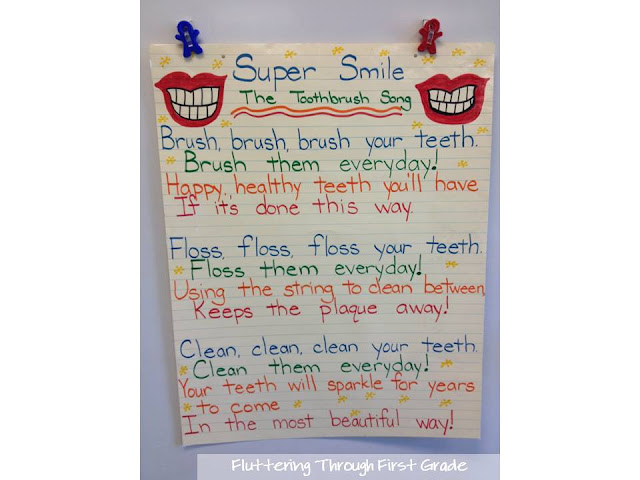 Super Smile
The Toothbrush Song
Brush, brush, brush your teeth.
Brush them everyday!
Happy, healthy teeth you'll have
If it's done this way.
Floss, floss, floss your teeth.
Floss them everyday!
Using the string to clean between
Keeps the plaque away!
Clean, clean, clean your teeth.
Clean them everyday!
Your teeth will sparkle for years
to come
In the most beautiful way!
Fluttering Through First Grade